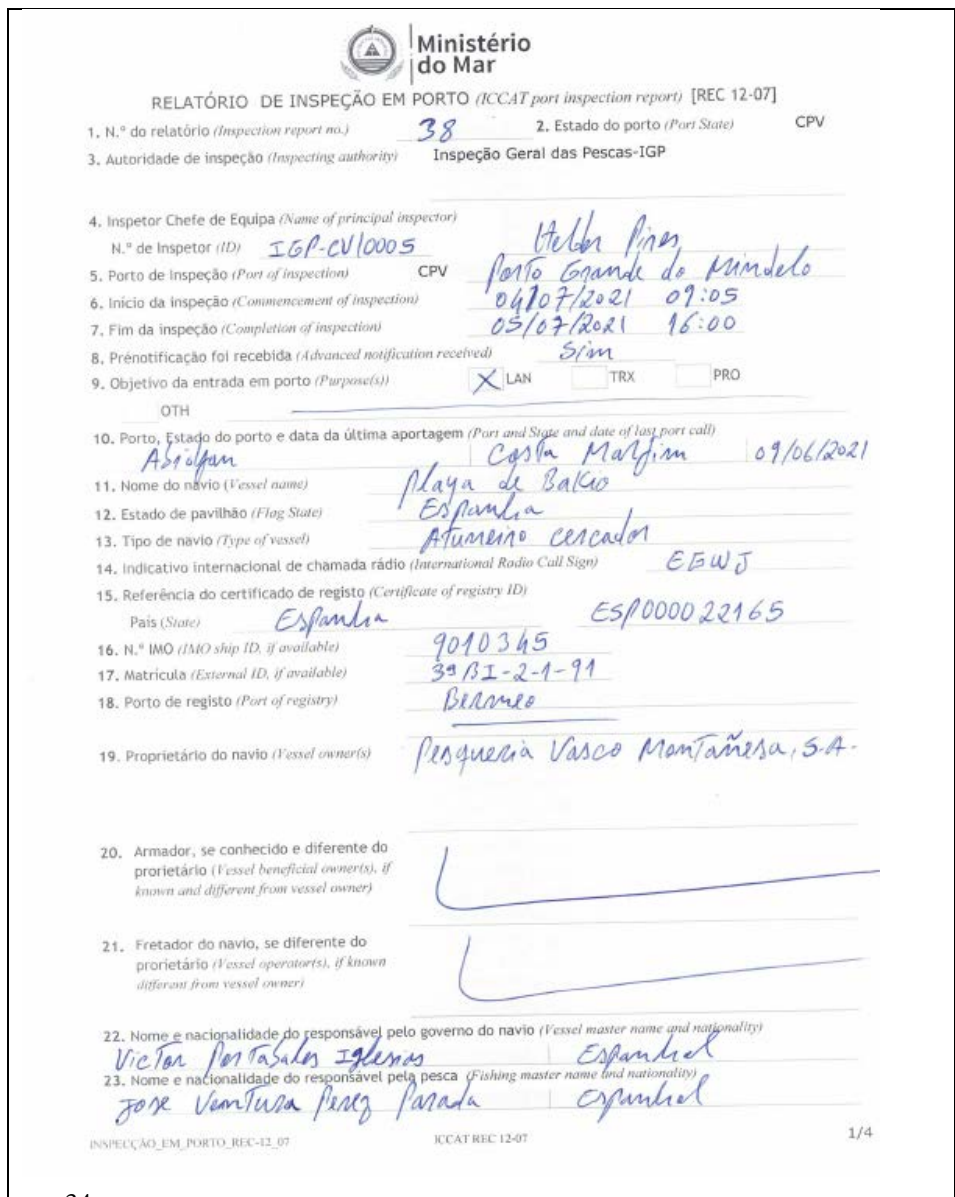 Ministério
do Mar
RELATÓRIO DE INSPEÇÃO EM PORTO (ICCAT port inspection report) [REC 12-07]
1. N.º do relatório (Inspection report no.) 38 2. Estado do porto (Port State) CPV
3. Autoridade de inspeção (Inspecting authority) Inspeção Geral das Pescas-IGP
4. Inspetor Chefe de Equipa (Name of principal inspector)
N.º de Inspetor (ID) IGP-CV/0005 Helder Pires
5. Porto de Inspeção (Port of inspection) CPV Porto Grande do Mindelo
6. Início da inspeção (Commencement of inspection) 04/07/2021 09:05
7. Fim da inspeção (Completion of inspection) 05/07/2021 16:00
8. Prénotificação foi recebida (Advanced notification received) Sim
9. Objetivo da entrada em porto (Purpose(s)) X LAN TRX PRO
OTH
10. Porto, Estado do porto e data da última aportagem (Port and State and date of last port call)
Costa Marfim 09/06/2021
11. Nome do navio (Vessel name) Playa de Bakio
12. Estado de pavilhão (Flag State) Espanha
13. Tipo de navio (Type of vessel) Atuneiro cercador
14. Indicativo internacional de chamada rádio (International Radio Call Sign) EGWJ
15. Referência do certificado de registo (Certificate of registry ID)
Pais (State) Espanha ESP000022165
16. N.º IMO (IMO ship ID, if available) 9010345
17. Matrícula (External ID, if available) 3ªBI-2-1-91
18. Porto de registo (Port of registry) Bermeo
19. Proprietário do navio (Vessel owner(s) Pesqueria Vasco Montañesa, S.A.
20. Armador, se conhecido e diferente do
prorietário (Vessel beneficial owner(s), if
known and different from vessel owner)
21. Fretador do navio, se diferente do
prorietário (Vessel operator(s), if known
different from vessel owner)
22. Nome e nacionalidade do responsável pelo governo do navio (Vessel master name and nationality)
Victor Portasales Iglesias Espanhol
23. Nome e nacionalidade do responsável pela pesca (Fishing master name and nationality)
Jose Ventura Perez Parada Espanhol
INSPECÇÃO_EM_PORTO_REC-12_07 ICCAT REC 12-07 1/4